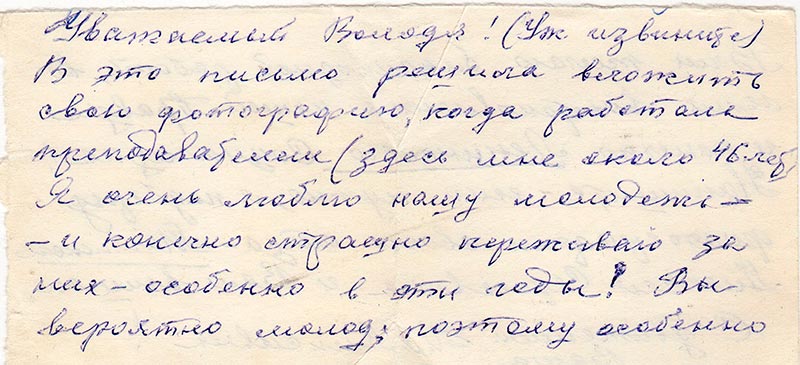 Уважаемый Володя! (Уж извините)
В это письмо решила вложить
свою фотографию, когда работала
преподавателем (здесь мне около 46 лет)
Я очень люблю нашу молодежь –
– и конечно страшно переживаю за
них – особенно в эти годы! Вы
вероятно молод; поэтому особенно